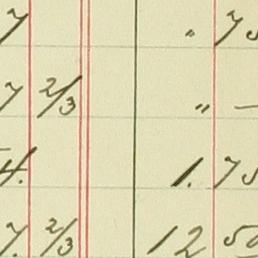 7 " 75
7 2/3 " —
4. 1.75
7. 2/3 12 50